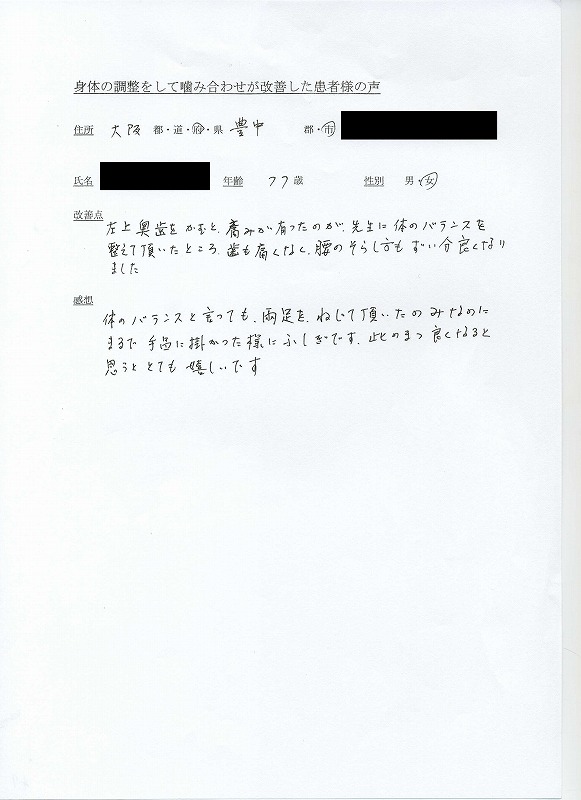 身体の調整をして噛み合わせが改善した患者様の声
住所 大阪 都・道・府・県 豊中 郡・市
氏名 年齢 77歳 性別 男・女
改善点
左上奥歯をかむと、痛みが有ったのが、先生に体のバランスを
整えて頂いたところ、歯も痛くなく、腰のそらし方もずい分良くなり
ました
感想
体のバランスと言っても、両足を、ねじて頂いたのみなのに
まるで手品に掛かった様にふしぎです、此のまつ良くなると
思うととても嬉しいです